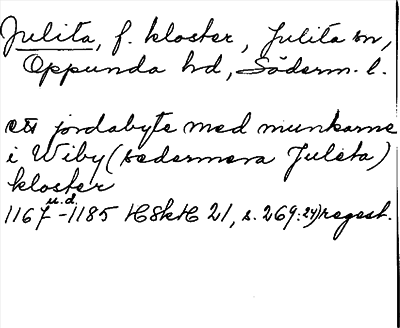 Julita, f. kloster, Julita sn,
Oppunda hd, Söderm. l.
ett jordabyte med munkarne
i Wiby (sedermera Juleta)
kloster
u.d.
1167-1185 HSkH 21, s. 269: 24) regest.